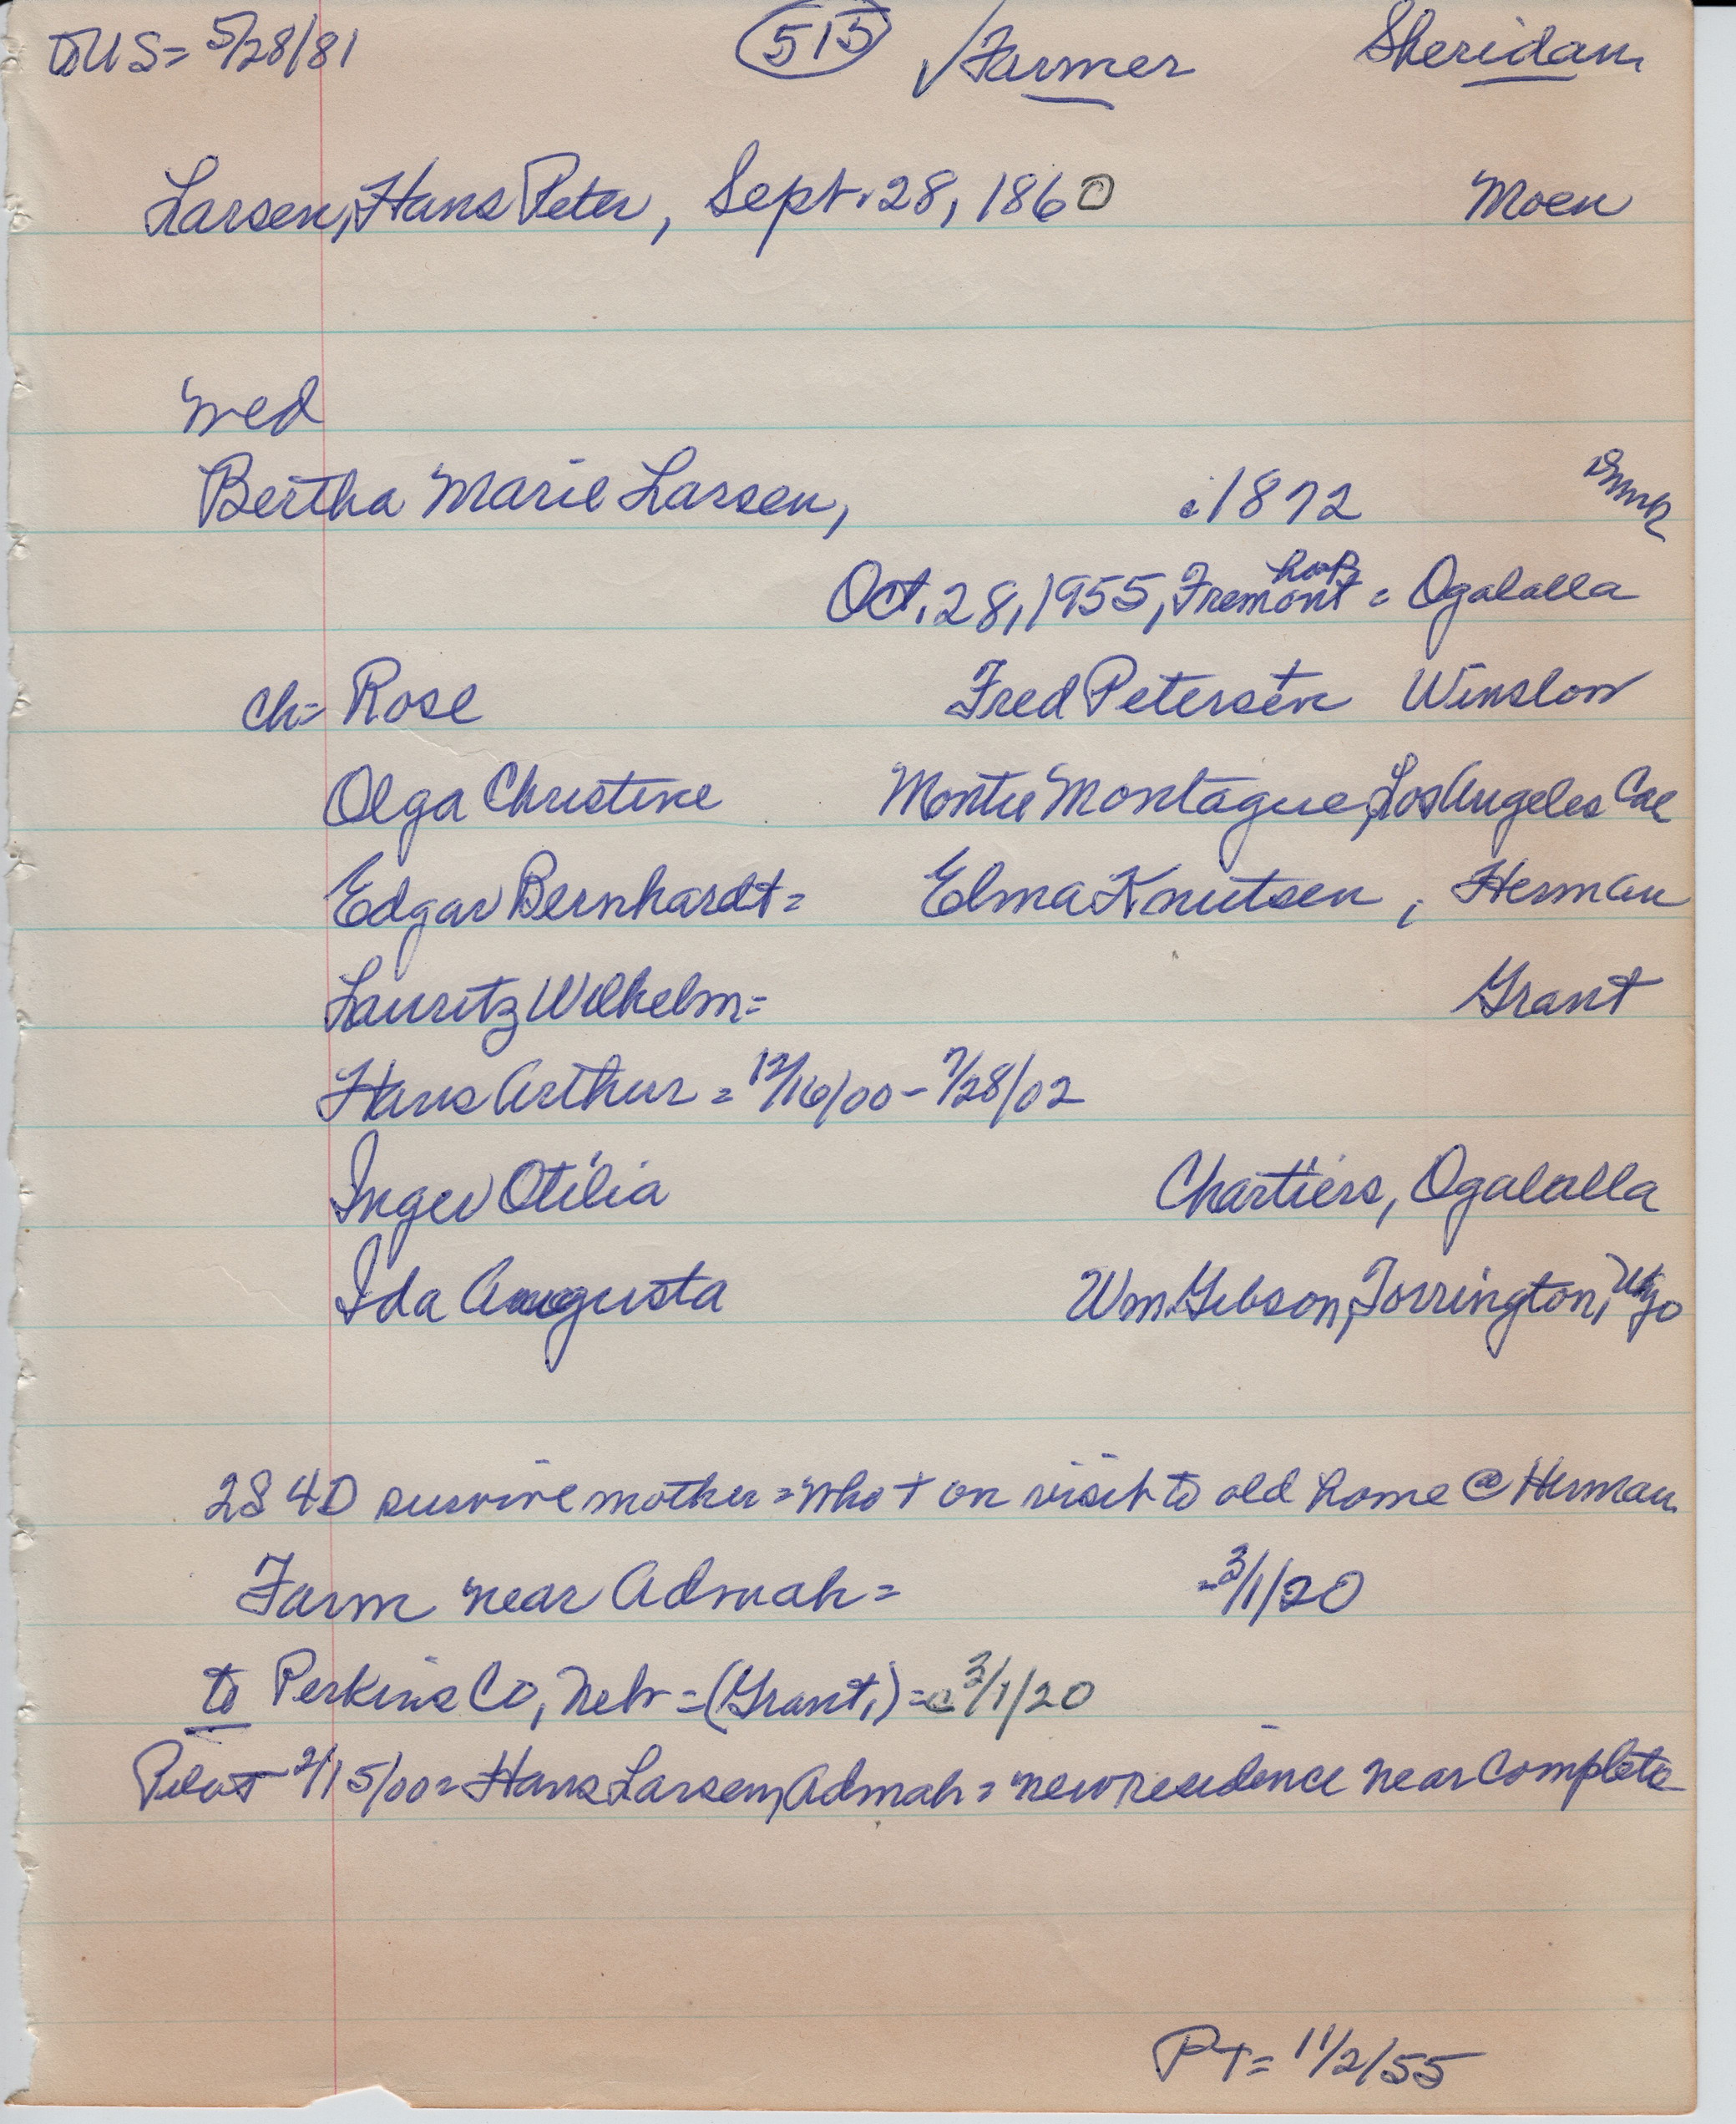 to US = 5/28/81 515 √Farmer Sheridan
Larsen, Hans Peter, Sept. 28, 1860 Moen
wed
Bertha Marie Larsen, c1872 Dmmk
Oct. 28, 1955, Fremont hosp = Ogalalla
ch = Rose Fred Petersen + Winslow
Olga Christine Montie Montague, Los Angeles Cal
Edgar Bernhardt = Elma Knutsen, Herman
Lauritz Wilhelm = Grant
Hans Arthur = 12/16/00 - 7/28/02
Inger Otilia Chartiers, Ogalalla
Ida Augusta Wm. Gibson, Torrington, Wyo
2S 4D survive mother = who + on visit to old home @ Herman
Farm near Admah = -3/1/20
to Perkins Co, Nebr = (Grant,) = c 3/1/20
Pilot 2/15/00 = Hans Larsen, Admah = new residence near complete
PT = 11/2/55